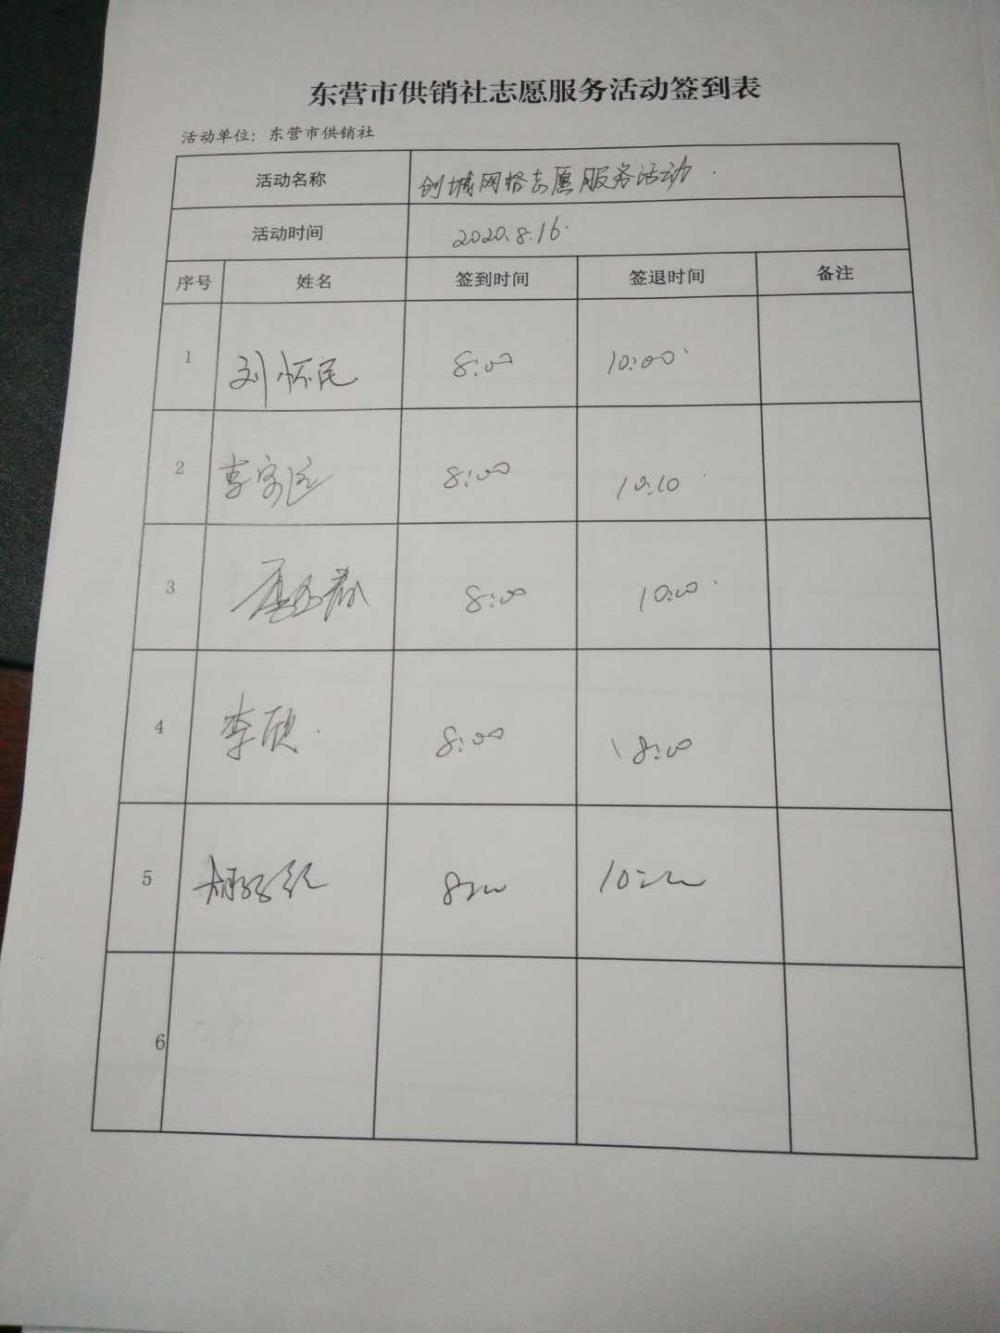 东营市供销社志愿服务活动签到表
活动单位：东营市供销社
活动名称 创城网格志愿服务活动
活动时间 2020.8.16
序号 姓名 签到时间 签退时间 备注
1 刘怀民 8:00 10:00
2 8:00 10:10
3 8:00 10:00
4 李欣 8:00 18:00
5 8:00 10:00
6